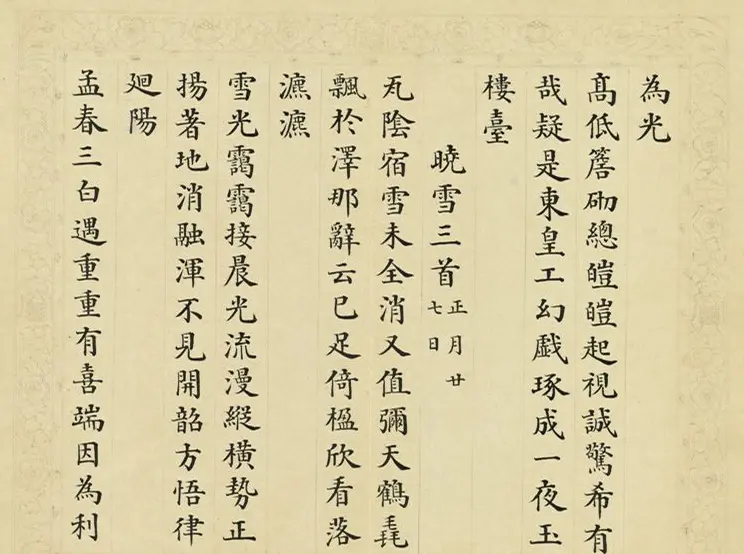 為光
髙低簷砌總皚皚起視誠驚希有
哉疑是東皇工幻戱琢成一夜玉
樓臺
曉雪三首正月廿七日
瓦陰宿雪未全消又值彌天鶴毳
飄於澤那辭云已足倚楹欣看落
瀌瀌
雪光靄靄接晨光流漫縱橫勢正
揚著地消融渾不見開韶方悟律
廻陽
孟春三白遇重重有喜端因為利